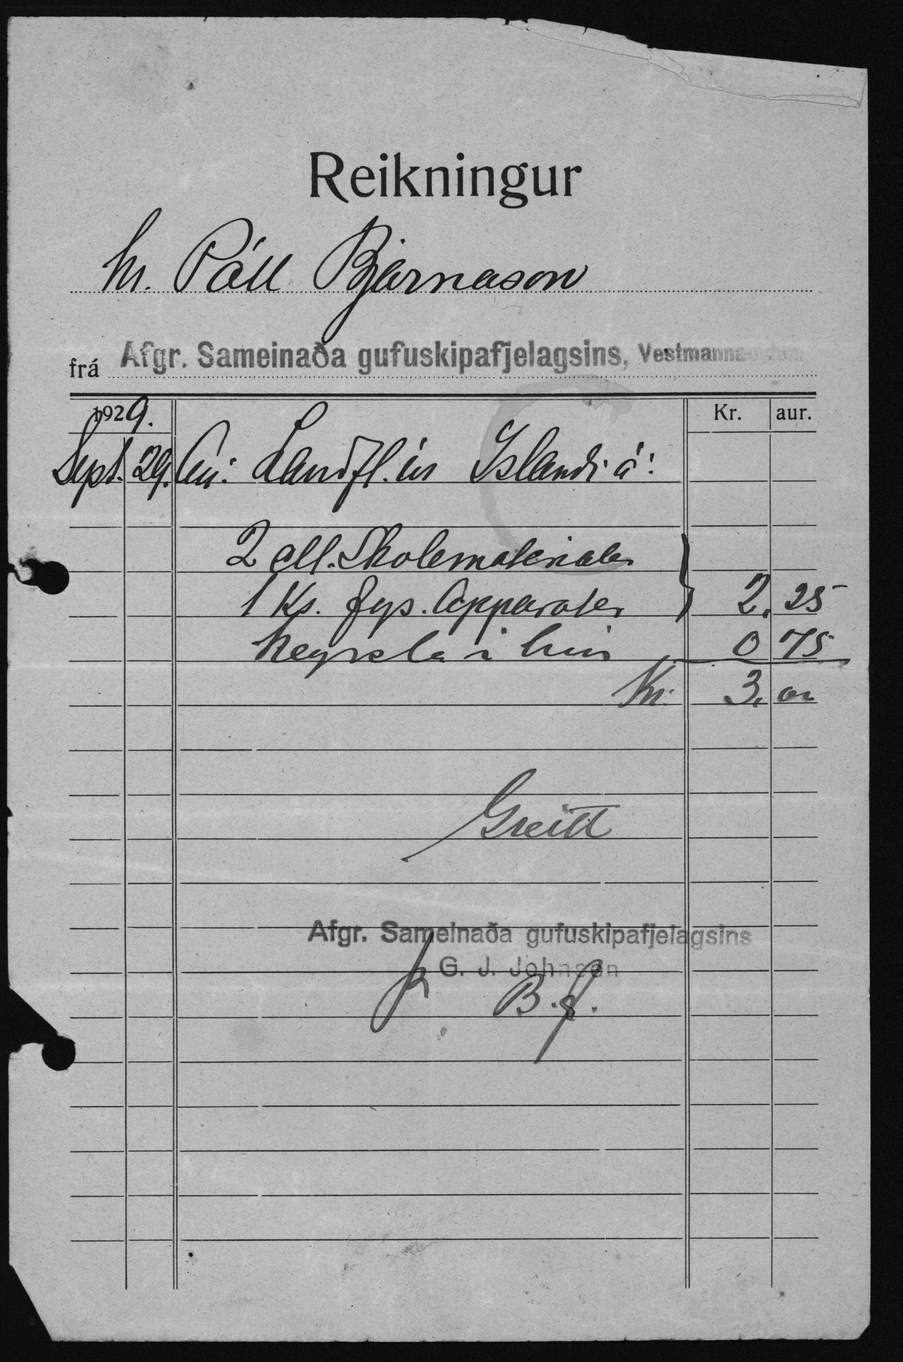 Reikningur
hr. Páll Bjarnason
frá Afgr. Sameinaða gufuskipafjelagsins, Vestmannaeyjum
1929. Kr. aur.
Sept. 29. Landfl. úr Islandi á:
2 Skolematerialer
1 Ks. fys. Apparater 2,25
Keyrsla í hús 0 75
Kr. 3,00
Greitt
Afgr. Sameinaða gufuskipafjelagsins
G. J. Johnsen
B.